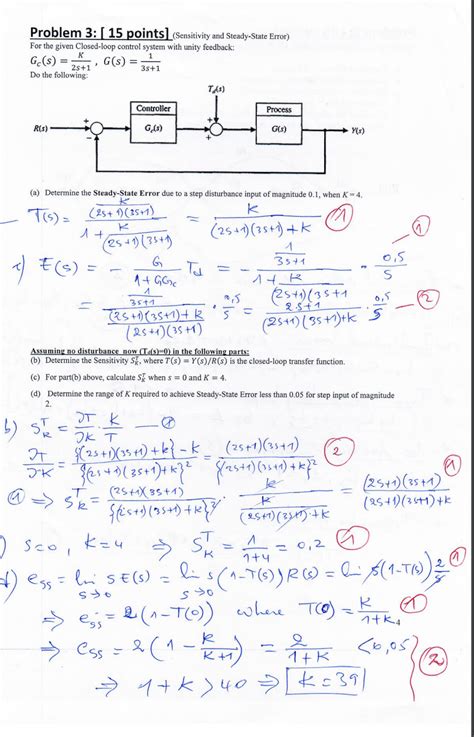 Problem 3: [ 15 points] (Sensitivity and Steady-State Error)
For the given Closed-loop control system with unity feedback:
G_c(s) = K/(2s+1) , G(s) = 1/(3s+1)
Do the following:
T_d(s)
Controller
Process
R(s)
+
−
G_c(s)
+
+
G(s)
Y(s)
(a) Determine the Steady-State Error due to a step disturbance input of magnitude 0.1, when K = 4.
T(s) = (K/((2s+1)(3s+1)))/(1 + K/((2s+1)(3s+1))) = K/((2s+1)(3s+1)+K) 1
1
E(s) = − G/(1+GG_c) T_d = − (1/(3s+1))/(1 + K/((2s+1)(3s+1))) · 0,5/s
= (1/(3s+1))/(((2s+1)(3s+1)+K)/((2s+1)(3s+1))) · 0,5/s = (2s+1)/((2s+1)(3s+1)+K) · 0,5/s 2
Assuming no disturbance now (T_d(s)=0) in the following parts:
(b) Determine the Sensitivity S_K^T, where T(s) = Y(s)/R(s) is the closed-loop transfer function.
(c) For part(b) above, calculate S_K^T when s = 0 and K = 4.
(d) Determine the range of K required to achieve Steady-State Error less than 0.05 for step input of magnitude
2.
b) S_K^T = ∂T/∂K · K/T
∂T/∂K = ({(2s+1)(3s+1)+K} − K)/{(2s+1)(3s+1)+K}² = (2s+1)(3s+1)/{(2s+1)(3s+1)+K}² 2
⇒ S_K^T = (2s+1)(3s+1)/{(2s+1)(3s+1)+K}² · K/(K/((2s+1)(3s+1)+K)) = (2s+1)(3s+1)/((2s+1)(3s+1)+K) 1
) s=0 , K=4 ⇒ S_K^T = 1/(1+4) = 0,2 1
d) e_ss = lim s→0 s E(s) = lim s→0 s(1−T(s))R(s) = lim s(1−T(s)) 2/s 1
⇒ e_ss = 2(1−T(0)) where T(0) = K/(1+K) 1
⇒ e_ss = 2(1 − K/(K+1)) = 2/(1+K) <0,05
2
⇒ 1+K > 40 ⇒ K = 39